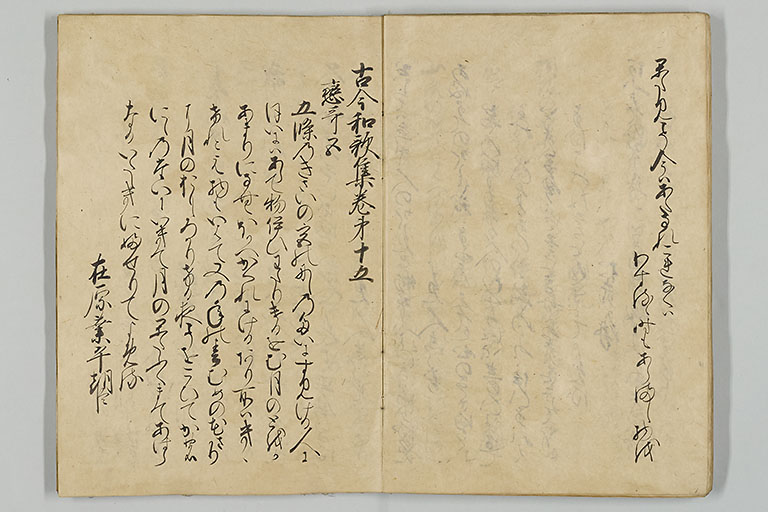 かたみこそ今はあたなれこれなくは
わするゝ時もあらまし物を
古今和歌集巻第十五
戀哥五
五條のきさいの宮のにしのたいにすみける人に
ほいにはあらて物伊ひわたりけるをむ月のとをか
あまりになむほかへかくれにけるあり所はきゝ
けれとえ物いはて又の年の春むめの花さかり
に月のおもしろかりける夜こそをこひてかの
にしのたいにいきて月のかたふくまてあはら
なるいたしきにふせりてよめる
在原業平朝臣